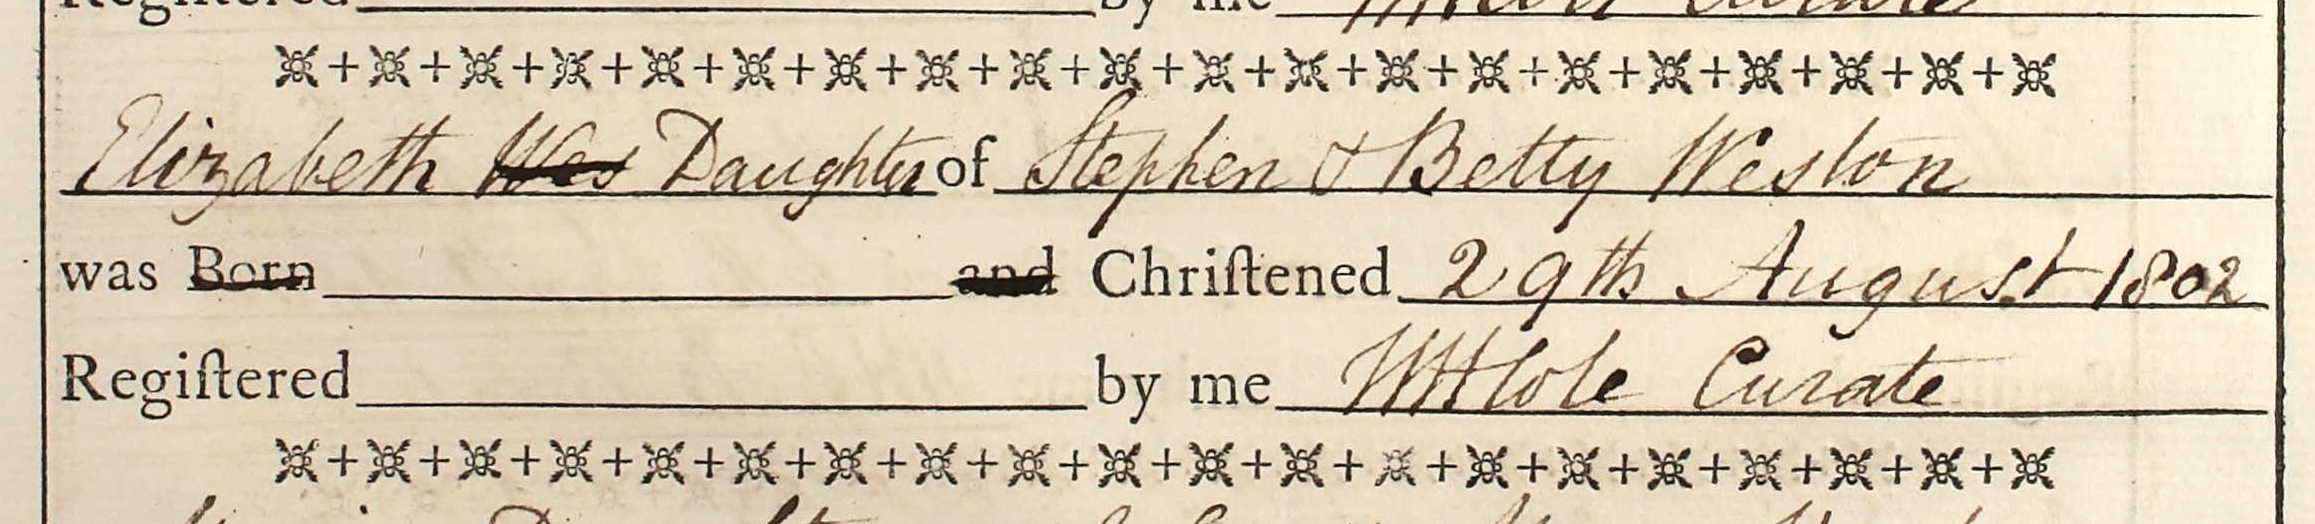 Registered by me Curate
Elizabeth Wes Daughter of Stephen & Betty Weston
was Born and Chriſtened 29th August 1802
Regiſtered by me WHCole Curate